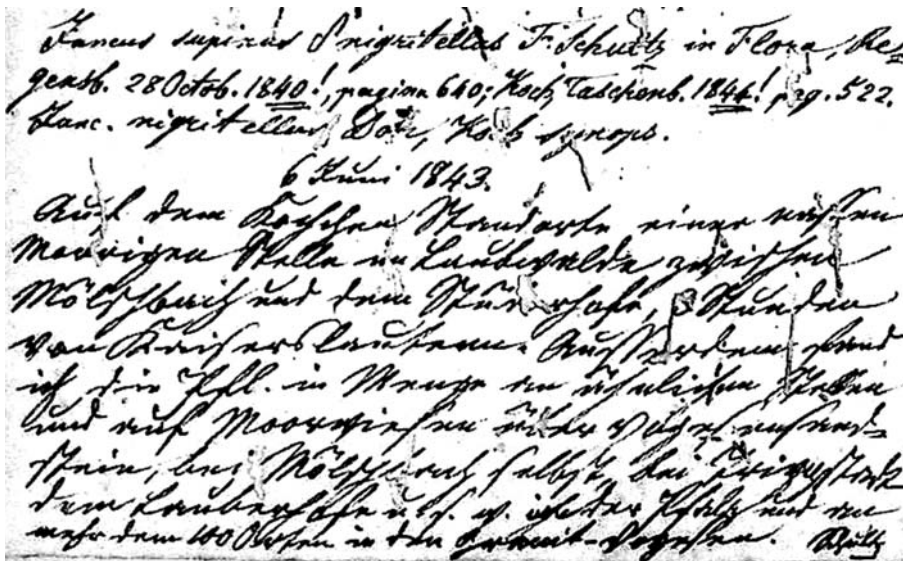 Juncus supinus δ nigritellus F. Schultz in Flora, Re-
gensb. 28 Octob. 1840!, pagina 640; Koch Taschenb. 1844! pag. 522.
Junc. nigritellus, Koch synops.
6 Juni 1843.
Auf dem Koch'schen Standorte einer nassen
moorigen Stelle im Laubwalde zwischen
Mölschbach und dem Stüderhofe, 3 Stunden
von Kaiserslautern. Ausserdem fand
ich die Pfl. in Menge an ähnlichen Stellen
und auf Moorwiesen über Vogesensand-
stein, bei Mölschbach selbst, bei
dem Lauberhofe u. s. w. in der Pfalz und an
mehr dem 100 Orten in den Granit-Vogesen. Schultz